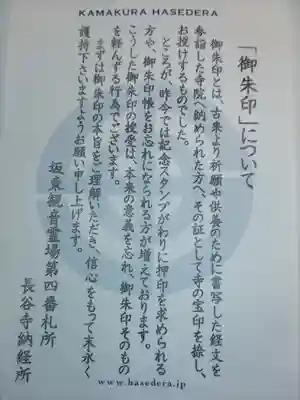 KAMAKURA HASEDERA
「御朱印」について
御朱印とは、古来より祈願や供養のために書写した経文を
参詣した寺院へ納められた方へ、その証として寺の宝印を捺し、
お授けするものでした。
ところが、昨今では記念スタンプがわりに押印を求められる
方や、御朱印帳をお忘れになられる方が増えております。
こうした御朱印の授受は、本来の意義を忘れ、御朱印そのもの
を軽んずる行為でございます。
まずは御朱印の本旨をご理解いただき、信心をもって末永く
護持下さいますようお願い申し上げます。
坂東観音霊場第四番札所
長谷寺納経所
www.hasedera.jp